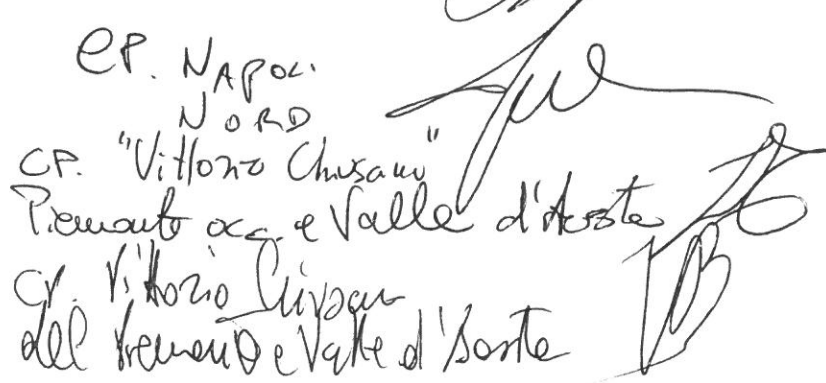 CP. NAPOLI
NORD
CP. "Vittorio Chiusano"
Piemonte occ. e Valle d'Aosta
CP. Vittorio Chiusano
del Piemonte e Valle d'Aosta